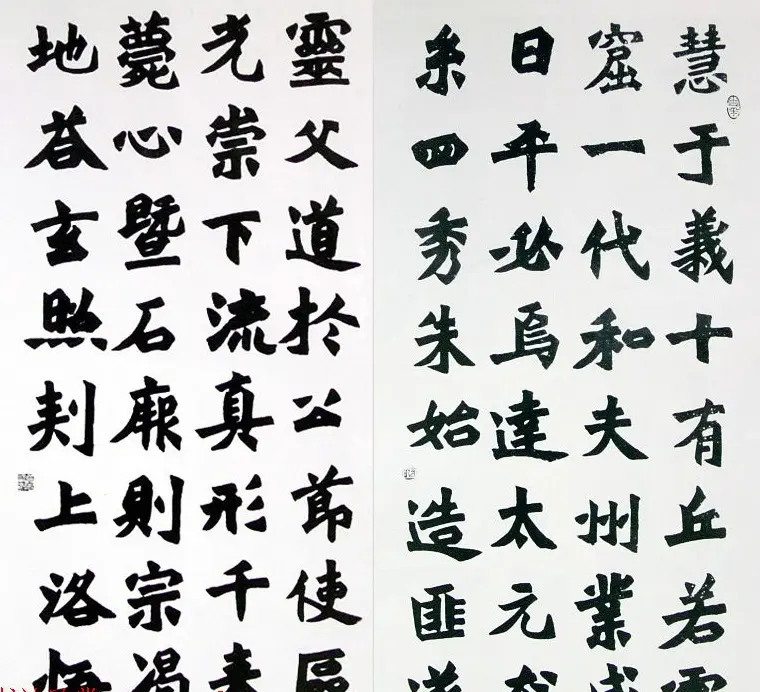 慧于義十有丘若
窟一代和夫州業成
日平必烏達太元
糸四秀朱始造匪
靈父道於公節使區
光崇下流真形千
薨心暨石則宗
地荅玄照上洛